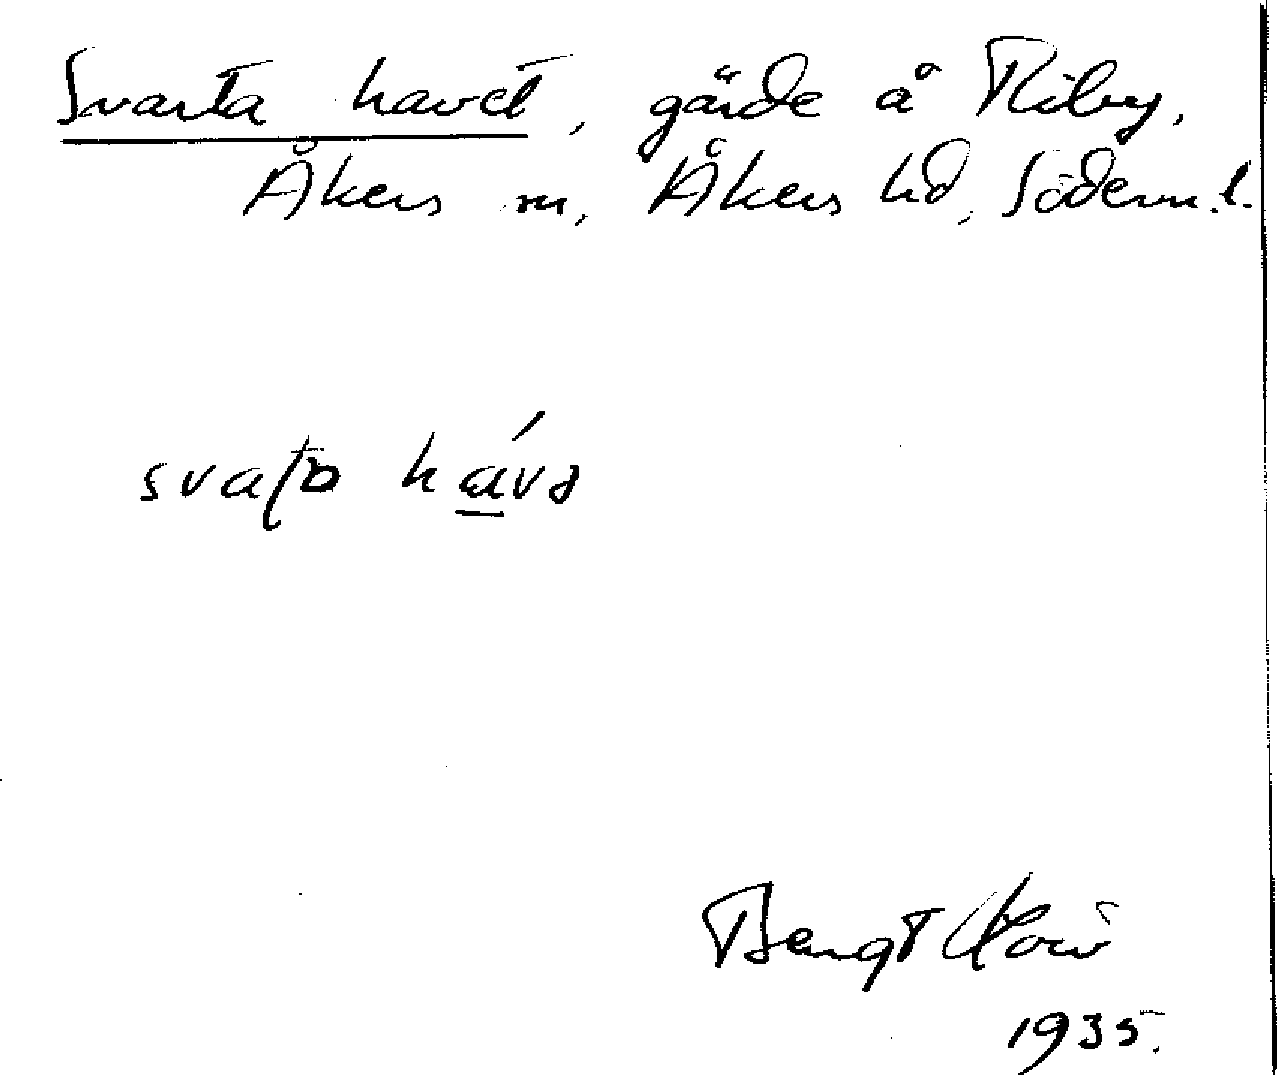 Svarta havet, gärde å Riby,
Åkers sn, Åkers hd, Söderm.l.
hávə
Bengt
1935.